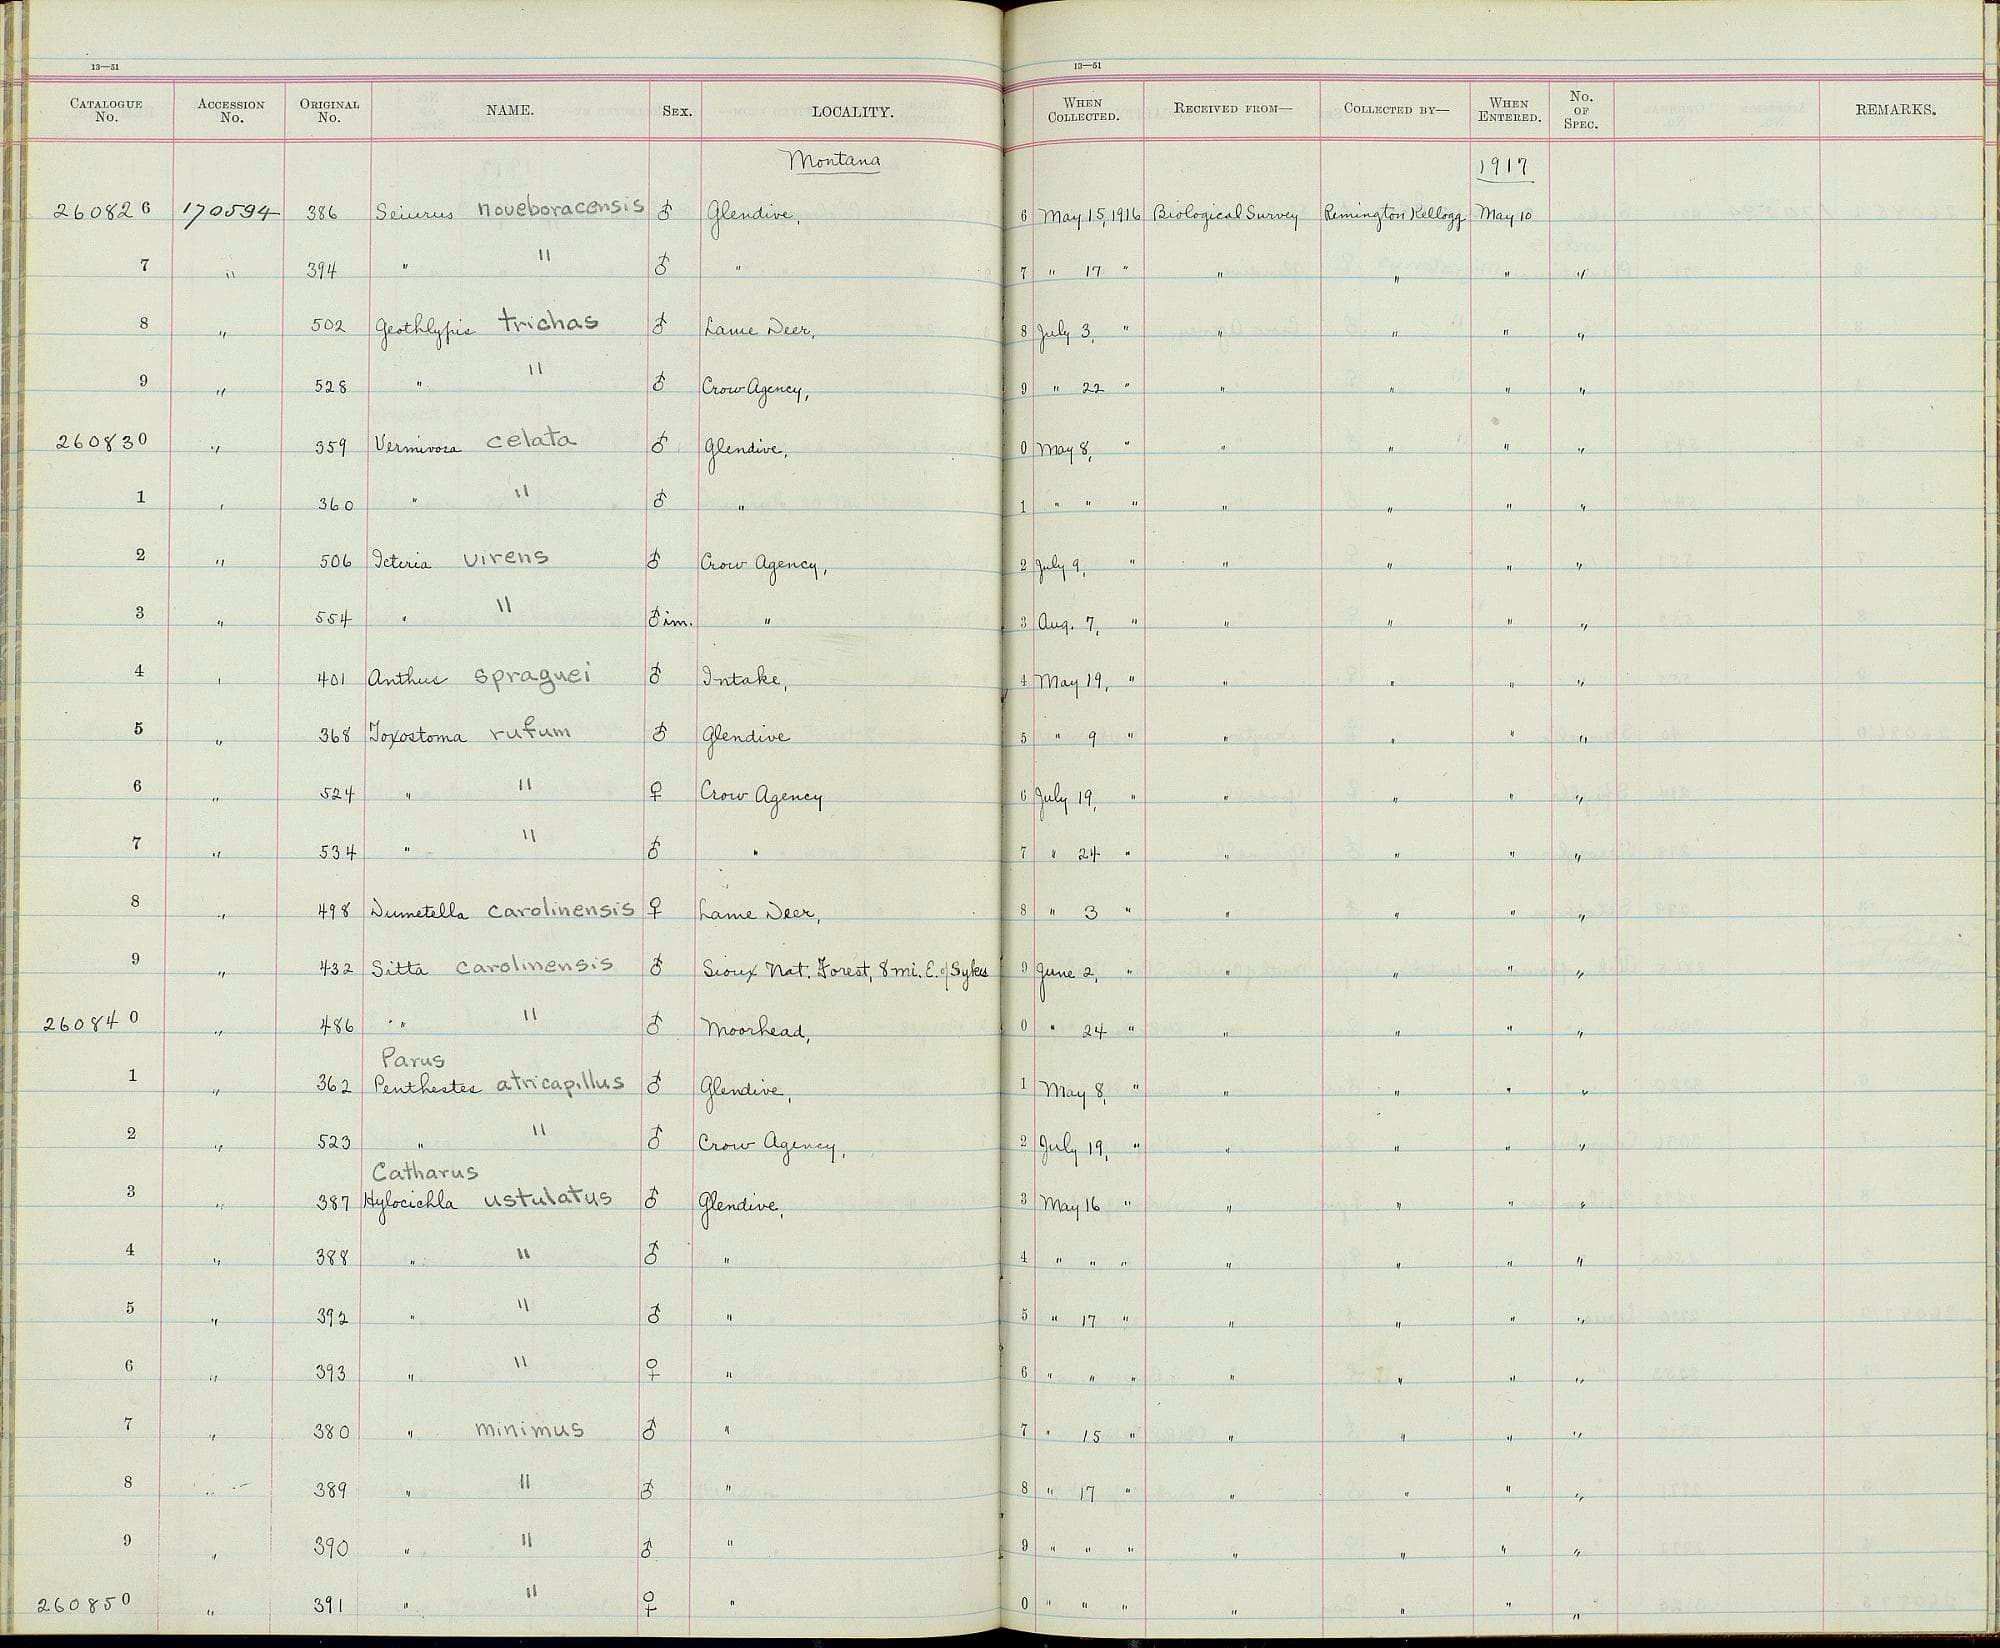 13—51 13—51
CATALOGUE No. ACCESSION No. ORIGINAL No. NAME. SEX. LOCALITY. WHEN COLLECTED. RECEIVED FROM— COLLECTED BY— WHEN ENTERED. No. OF SPEC. REMARKS.
Montana 1917
260826 170594 386 Seiurus noveboracensis ♂ Glendive, 6 May 15, 1916 Biological Survey Remington Kellogg May 10
7 " 394 " " ♂ " 7 " 17 " " " " "
8 " 502 Geothlypis trichas ♂ Lame Deer, 8 July 3, " " " " "
9 " 528 " " ♂ Crow Agency, 9 " 22 " " " " "
260830 " 359 Vermivora celata ♂ Glendive, 0 May 8, " " " " "
1 " 360 " " ♂ " 1 " " " " " " "
2 " 506 Icteria virens ♂ Crow Agency, 2 July 9, " " " " "
3 " 554 " " ♂ im. " 3 Aug. 7, " " " " "
4 " 401 Anthus spraguei ♂ Intake, 4 May 19, " " " " "
5 " 368 Toxostoma rufum ♂ Glendive 5 " 9 " " " " "
6 " 524 " " ♀ Crow Agency 6 July 19, " " " " "
7 " 534 " " ♂ " 7 " 24 " " " " "
8 " 498 Dumetella carolinensis ♀ Lame Deer, 8 " 3 " " " " "
9 " 432 Sitta carolinensis ♂ Sioux Nat. Forest, 8 mi. E. of Sykes 9 June 2, " " " " "
260840 " 486 " " ♂ Moorhead, 0 " 24 " " " " "
Parus
1 " 362 Penthestes atricapillus ♂ Glendive, 1 May 8, " " " " "
2 " 523 " " ♂ Crow Agency, 2 July 19, " " " " "
Catharus
3 " 387 Hylocichla ustulatus ♂ Glendive, 3 May 16 " " " " "
4 " 388 " " ♂ " 4 " " " " " " "
5 " 392 " " ♂ " 5 " 17 " " " " "
6 " 393 " " ♀ " 6 " " " " " " "
7 " 380 " minimus ♂ " 7 " 15 " " " " "
8 " 389 " " ♂ " 8 " 17 " " " " "
9 " 390 " " ♂ " 9 " " " " " " "
260850 " 391 " " ♀ " 0 " " " " " " "